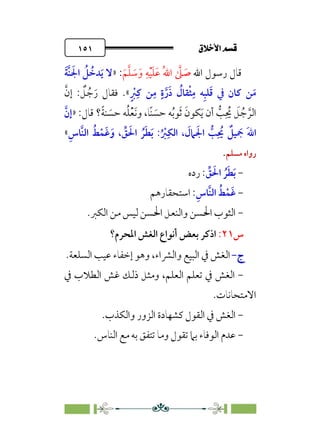 قسم الأخلاق
١٥١
قال رسول الله صَلَّى اللهُ عَلَيْهِ وَسَلَّمَ: «لا يَدخُلُ الجَنَّةَ
مَن كان في قَلبِه مِثْقالُ ذَرَّةٍ مِن كِبْرٍ». فقال رَجُلٌ: إنَّ
الرَّجُلَ يُحِبُّ أن يَكونَ ثَوبُه حَسنًا، ونَعْلُه حَسَنةً؟ قال: «إنَّ
اللهَ جَمِيلٌ يُحِبُّ الجَمالَ، الكِبْرُ: بَطَرُ الحَقِّ، وَغَمْطُ النَّاسِ»
رواه مسلم.
- بَطَرُ الحَقِّ: رده
- غَمْطُ النَّاسِ: استحقارهم
- الثوب الحسن والنعل الحسن ليس من الكبر.
س٢١: اذكر بعض أنواع الغش المحرم؟
ج- الغش في البيع والشراء، وهو إخفاء عيب السلعة.
- الغش في تعلم العلم، ومثل ذلك غش الطلاب في
الامتحانات.
- الغش في القول كشهادة الزور والكذب.
- عدم الوفاء بما تقول وما تتفق به مع الناس.